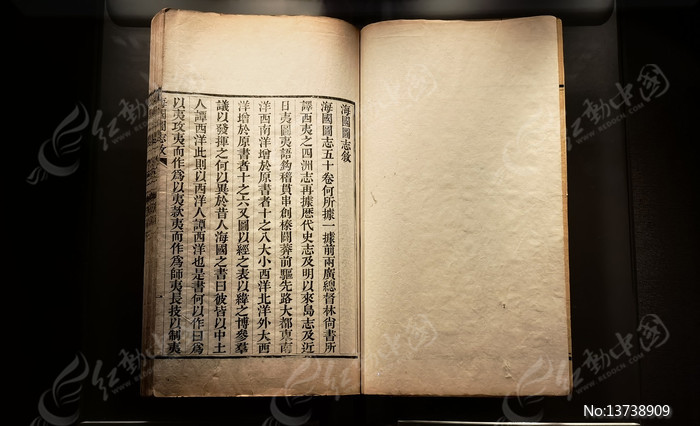 海國圖志敘
海國圖志五十卷何所據一據前兩廣總督林尙書所
譯西夷之四洲志再據歷代史志及明以來島志及近
日夷圖夷語鈎稽貫串創榛闢莽前驅先路大都東南
洋西南洋增於原書者十之八大小西洋北洋外大西
洋增於原書者十之六又圖以經之表以緯之博參羣
議以發揮之何以異於昔人海國之書曰彼皆以中土
人譚西洋此則以西洋人譚西洋也是書何以作曰爲
以夷攻夷而作爲以夷款夷而作爲師夷長技以制夷
海國圖志
一
红动中国
WWW.REDOCN.COM
No:13738909